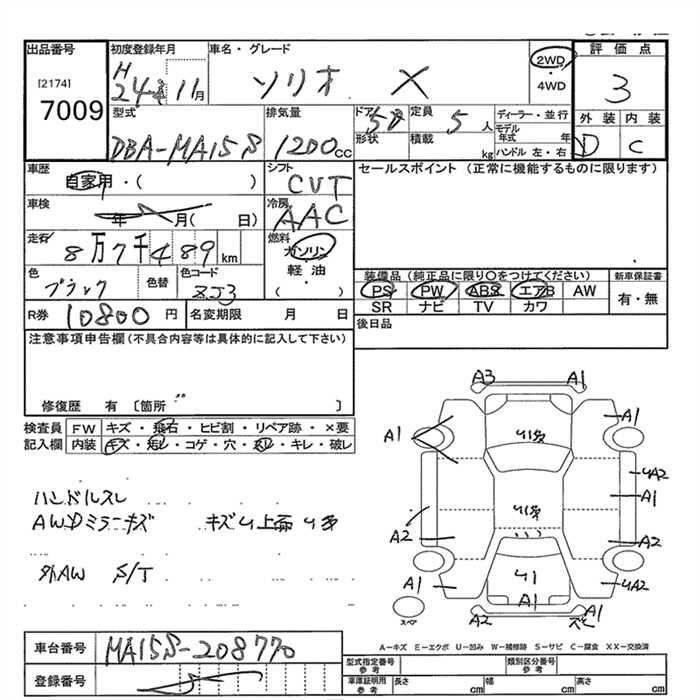 出品番号
[2174]
7009
初度登録年月
H 24年 11月
車名・グレード
ソリオ X
2WD
・
4WD
評価点
3
型式
DBA-MA15S
排気量
1200cc
ドア 5D
形状
定員 5人
積載 kg
ディーラー・並行
モデル年式 年
ハンドル 左・右
外装 内装
D C
車歴
自家用・( )
シフト
CVT
セールスポイント (正常に機能するものに限ります)
車検
年 月( 日)
冷房
AAC
走行
8万7千489km
燃料
ガソリン
軽油
( ・ )
色
ブラック
色替
色コード
ZJ3
装備品(純正品に限り○をつけてください)
PS PW ABS エアB AW
SR ナビ TV カワ
新車保証書
有・無
R券 10800円
名変期限 月 日
後日品
注意事項申告欄(不具合内容等は具体的に記入して下さい)
修復歴 有 〔箇所 〕
検査員記入欄
FW キズ・飛石・ヒビ割・リペア跡・×要
内装 キズ・汚レ・コゲ・穴・スレ・キレ・破レ
ハンドルスレ
AWDミラーキズ キズU上面U多
外AW S/T
A3 A1
A1 A1
U1多
UA2
A1
U1多
A2 A2
U1
A1 A1 UA2
A2
スペア
A-キズ E-エクボ U-凹み W-補修跡 S-サビ C-腐食 XX-交換済
車台番号 MA15S-208770
登録番号
型式指定番号 参考
類別区分番号 参考
車庫証明用 参考 長さ cm 幅 cm 高さ cm